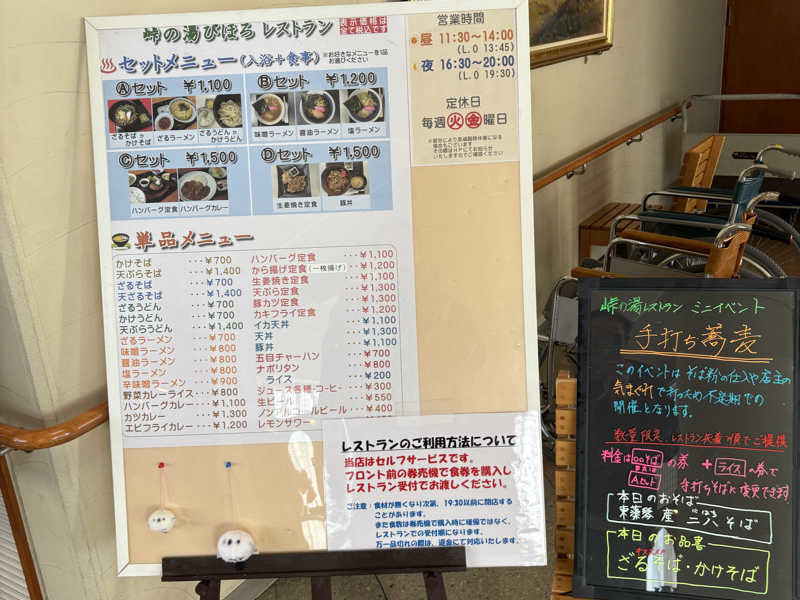 峠の湯びほろ レストラン
表示価格は
全て税込です
セットメニュー(入浴+食事)
※お好きなメニューを1品
お選びください
Ⓐセット ¥1,100
ざるそば or
かけそば
ざるラーメン
ざるうどん or
かけうどん
Ⓑセット ¥1,200
味噌ラーメン
醤油ラーメン
塩ラーメン
Ⓒセット ¥1,500
ハンバーグ定食
ハンバーグカレー
Ⓓセット ¥1,500
生姜焼き定食
豚丼
単品メニュー
かけそば ・・・¥700
天ぷらそば ・・・¥1,400
ざるそば ・・・¥700
天ざるそば ・・・¥1,400
ざるうどん ・・・¥700
かけうどん ・・・¥700
天ぷらうどん ・・・¥1,400
ざるラーメン ・・・¥700
味噌ラーメン ・・・¥800
醤油ラーメン ・・・¥800
塩ラーメン ・・・¥800
辛味噌ラーメン ・・・¥900
野菜カレーライス ・・・¥800
ハンバーグカレー ・・・¥1,100
カツカレー ・・・¥1,300
エビフライカレー ・・・¥1,200
ハンバーグ定食 ・・・¥1,100
から揚げ定食(一枚揚げ) ・・・¥1,200
生姜焼き定食 ・・・¥1,100
天ぷら定食 ・・・¥1,300
豚カツ定食 ・・・¥1,300
カキフライ定食 ・・・¥1,200
イカ天丼 ・・・¥1,100
天丼 ・・・¥1,300
豚丼 ・・・¥1,100
五目チャーハン ・・・¥700
ナポリタン ・・・¥800
ライス ・・・¥200
ジュース各種・コーヒー ・・・¥300
生ビール ・・・¥550
ノンアルコールビール ・・・¥400
レモンサワー
営業時間
昼 11:30~14:00
(L.O 13:45)
夜 16:30~20:00
(L.O 19:30)
定休日
毎週火金曜日
レストランのご利用方法について
当店はセルフサービスです。
フロント前の券売機で食券を購入し
レストラン受付でお渡しください。
ご注意:食材が無くなり次第、19:30以前に閉店する
ことがあります。
また食数は券売機で購入時に確保ではなく、
レストランでの受付順になります。
万一品切れの際は、返金にて対応いたします。
峠の湯レストラン ミニイベント
手打ち蕎麦
このイベントは そば粉の仕入や店主の
気まぐれで打つため不定期での
開催となります。
数量限定、レストラン受付順でご提供
料金は○○そばの券 + ライスの券で
又は
Aセット 手打ちそばに変更できます
本日のおそば
東藻琴産 二八そば
にはち
本日のお品書
オススメ
ざるそば・かけそば